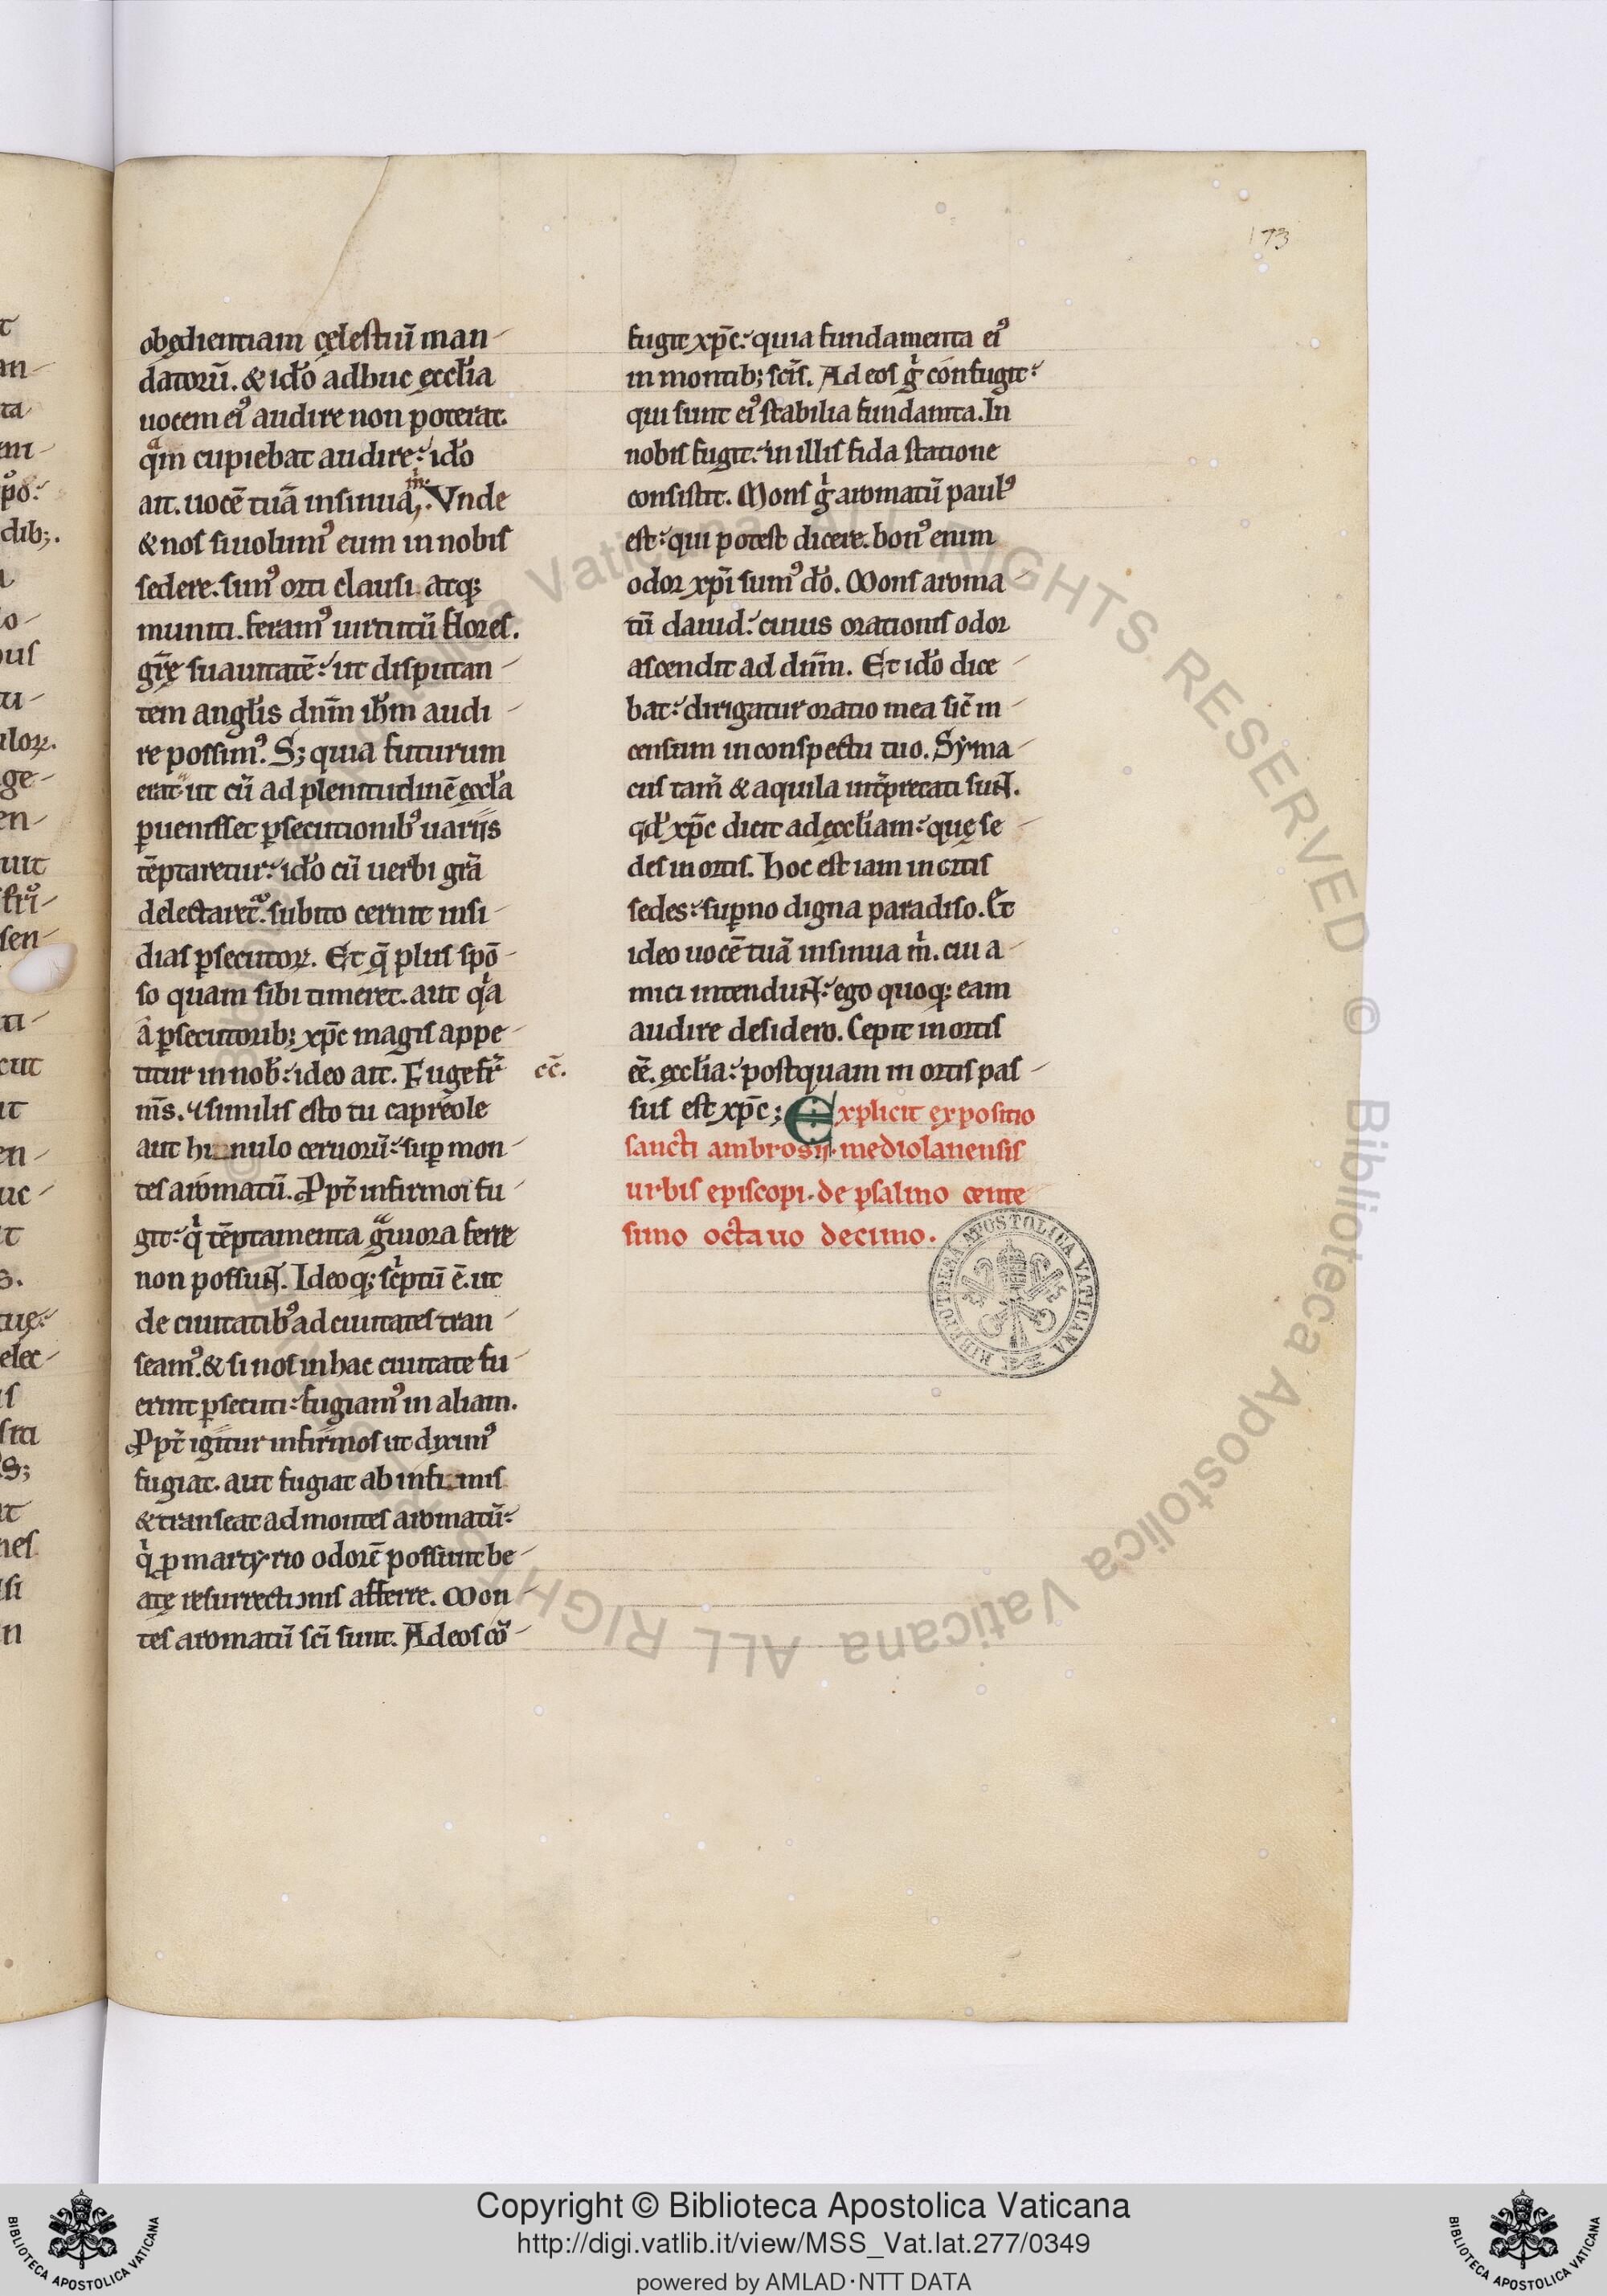 173
obędientiam cęlestiū man-
datorū. & id̕o adhuc ęccl̕ia
uocem ei⁹ audire non poterat.
qᵃm cupiebat audire: id̕o
ait. uocē tuā insinua m̕. Vnde
& nos si uolum⁹ eum in nobis
sedere. sim⁹ orti clausi atq;
muniti. feram⁹ uirtutū flores.
gr̄ę suauitatē: ut disputan-
tem angl̕is dn̄m ih̄m audi-
re possim⁹. S; quia futurum
erat ut cū ad plenitudinē ęccl̕a
ꝑuenisset ꝑsecutionib⁹ uariis
tēptaretur: id̕o cū uerbi grā
delectaret᷑. subito cernit insi-
dias ꝑsecutoꝝ. Et q̄ plus spō-
so quam sibi timeret. aut qⁱa
a ꝑsecutorib; xp̄c magis appe-
titur in nob̕: ideo ait. Fuge fr̄
m̄s. & similis esto tu capreole
aut hinnulo ceruorū: suꝑ mon-
tes aromatū. Ppt̄ infirmoi fu-
git: qⁱ tēptamenta gᵃuiora ferre
non possunt. Ideoq; scⁱptū ē. ut
de ciuitatib⁹ ad ciuitates tran-
seam⁹. & si nos in hac ciuitate fu-
erint ꝑsecuti: fugiam⁹ in aliam.
Ppt̄ igitur infirmos ut dixim⁹
fugiat. aut fugiat ab infirmis
& transeat ad montes aromatū:
qⁱ ꝑ martyrio odorē possunt be-
atę resurrectionis afferre. Mon-
tes aromatū sc̄i sunt. Ad eos cō-
ec̄.
fugit xp̄c: quia fundamenta ei⁹
in montib; scīs. Ad eos gⁱ confugit:
qui sunt ei⁹ stabilia fundam̄ta. In
nobis fugit: in illis fida statione
consistit. Mons gⁱ aromatū paul⁹
est: qui potest dicere. bon⁹ enim
odor xp̄i sum⁹ d̕o. Mons aroma-
tū dauid: cuius orationis odor
ascendit ad dn̄m. Et id̕o dice-
bat: dirigatur oratio mea sic̄ in-
censum in conspectu tuo. Syma-
cus tam̄ & aquila int̄pretati sunt.
qd̕ xp̄c dicit ad ęccl̕iam: quę se-
des in ortis. hoc est iam in ortis
sedes: suꝑno digna paradiso. Et
ideo uocē tuā insinua m̕. cui a-
mici intendunt: ego quoq; eam
audire desidero. Cepit in ortis
eē. ęccl̕ia: postquam in ortis pas-
sus est xp̄c; Explicit expositio
sancti ambrosii. mediolanensis
urbis episcopi. de psalmo cente
simo octauo decimo.
BIBLIOTHECA APOSTOLICA VATICANA
© Biblioteca Apostolica Vaticana ALL RIGHTS RESERVED © Biblioteca Apostolica Vaticana ALL RIGHTS RESERVED
Copyright © Biblioteca Apostolica Vaticana
http://digi.vatlib.it/view/MSS_Vat.lat.277/0349
powered by AMLAD·NTT DATA
BIBLIOTECA APOSTOLICA VATICANA
BIBLIOTECA APOSTOLICA VATICANA